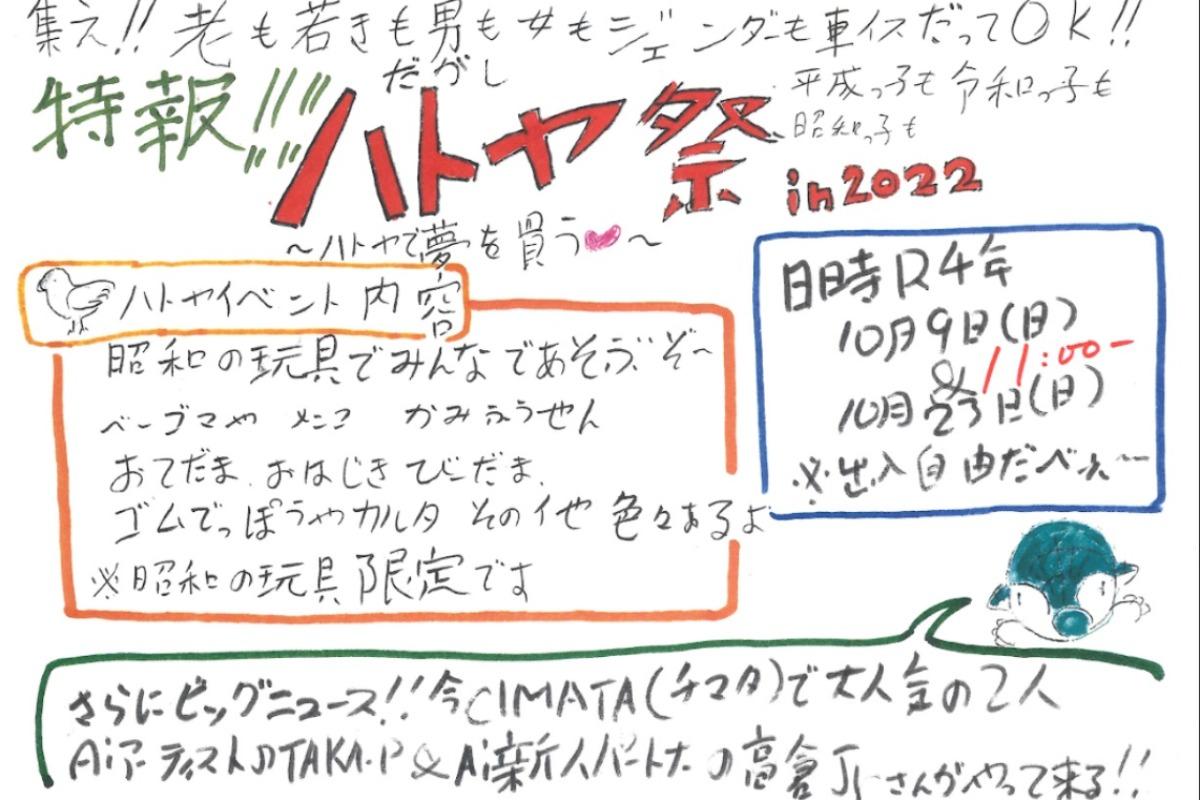 集え!! 老も若きも男も女もジェンダーも車イスだってOK!!
特報!!!
だがし
ハトヤ祭
平成っ子も令和っ子も
昭和っ子も
in2022
〜ハトヤで夢を買う〜
ハトヤイベント内容
昭和の玩具でみんなであそぶぞ〜
ベーゴマや メンコ かみふうせん
おてだま、おはじき びーだま、
ゴムでっぽうやカルタ その他 色々あるよ
※昭和の玩具限定です
日時R4年
10月9日(日)
& 11:00-
10月23日(日)
※出入自由だべぇ〜
さらにビッグニュース!!今CIMATA(チマタ)で大人気の2人
AiアーティストのTAKA.P&Ai新人パートナーの高倉Jrさんがやって来る!!